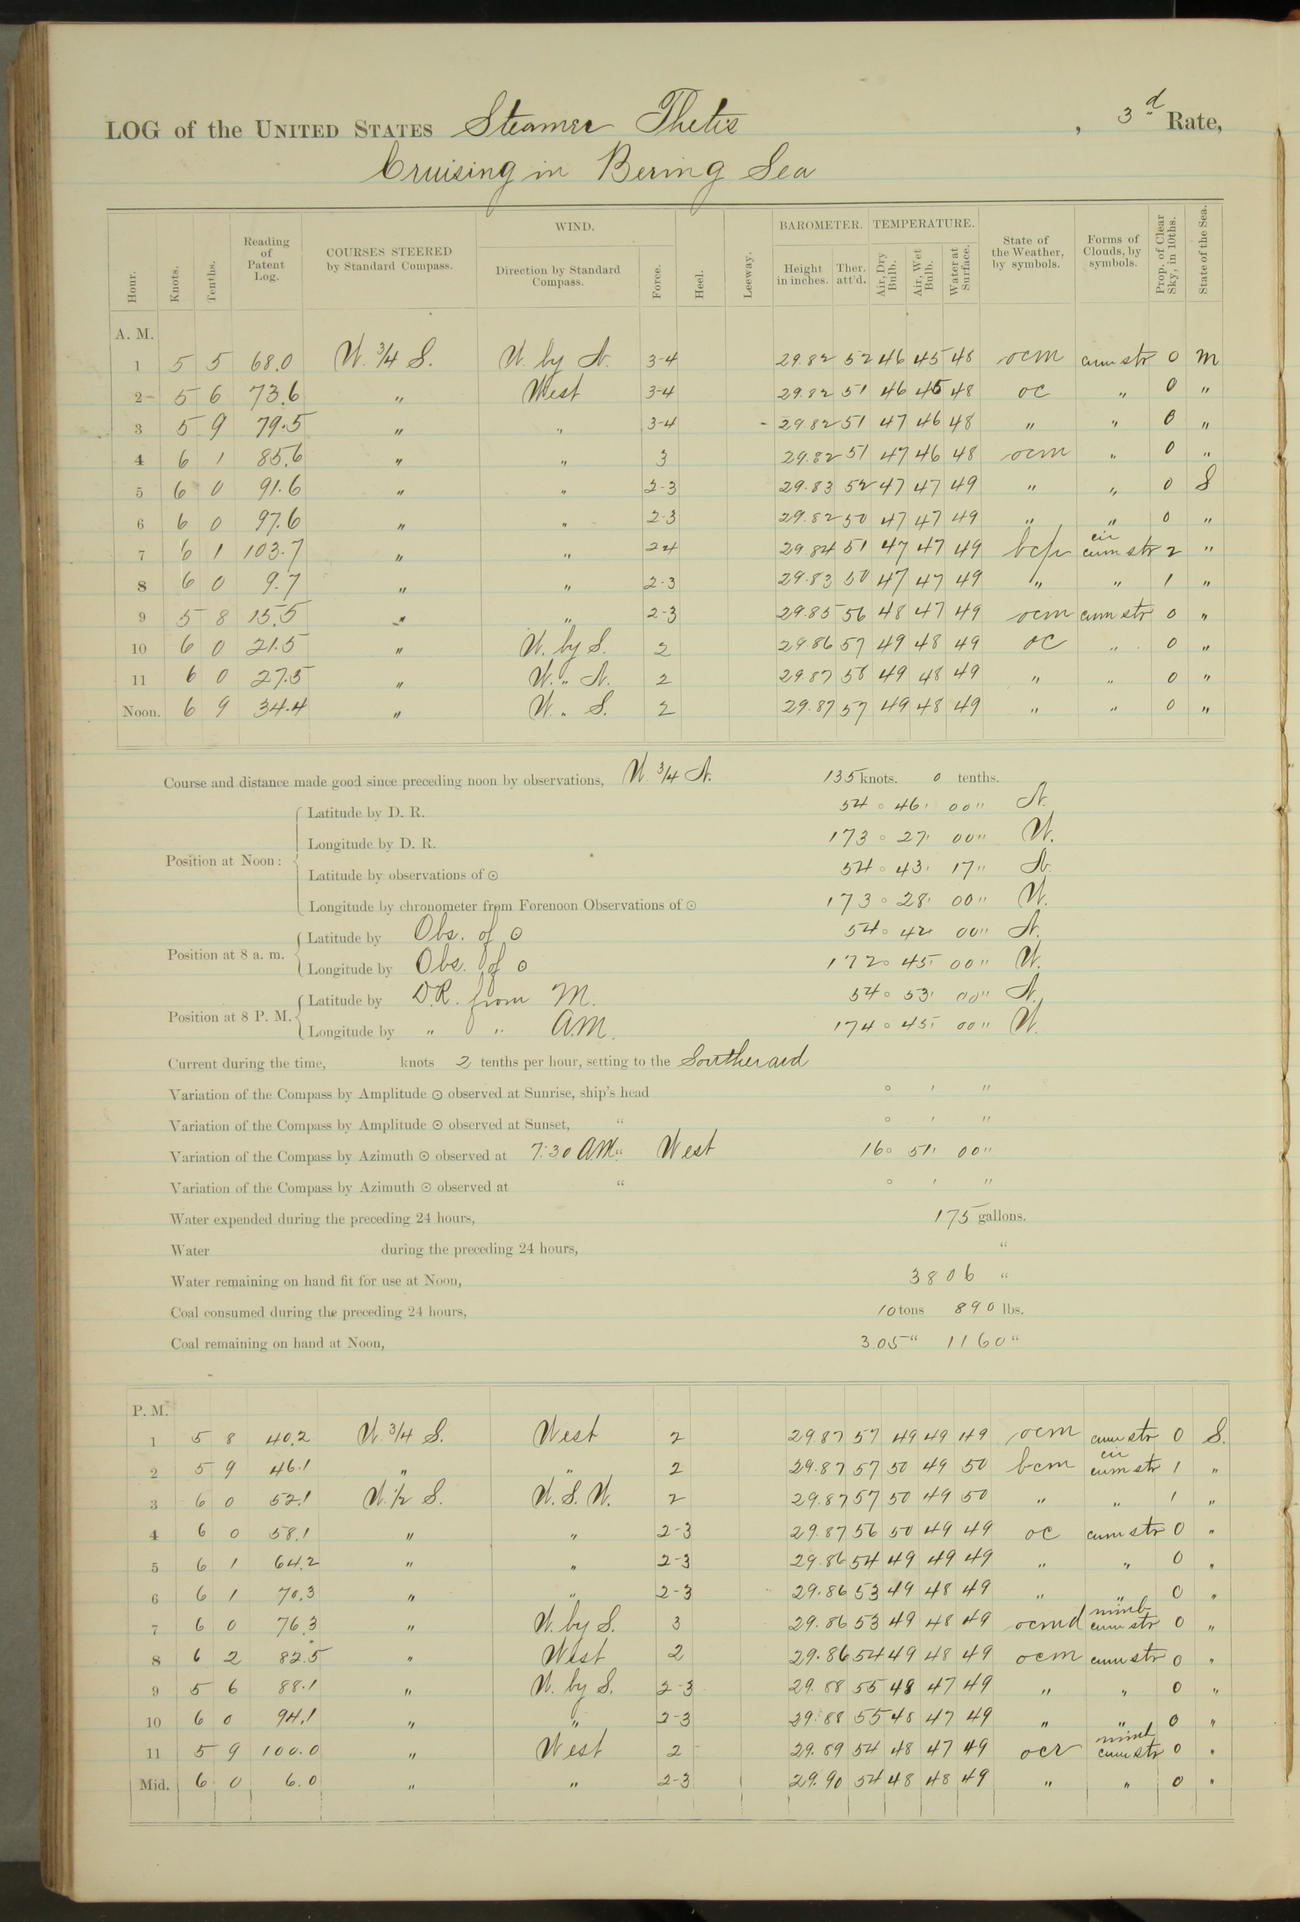 LOG of the UNITED STATES Steamer Thetis , 3d Rate,
Cruising in Bering Sea
Hour. Knots. Tenths. Reading of Patent Log. COURSES STEERED by Standard Compass. WIND. Direction by Standard Compass. Force. Heel. Leeway. BAROMETER. Height in inches. Ther. att'd. TEMPERATURE. Air, Dry Bulb. Air, Wet Bulb. Water at Surface. State of the Weather, by symbols. Forms of Clouds, by symbols. Prop. of Clear Sky, in 10ths. State of the Sea.
A. M.
1 5 5 68.0 W. 3/4 S. W. by N. 3-4 29.82 52 46 45 48 ocm cum str 0 m
2 5 6 73.6 " West 3-4 29.82 51 46 45 48 oc " 0 "
3 5 9 79.5 " " 3-4 29.82 51 47 46 48 " " 0 "
4 6 1 85.6 " " 3 29.82 51 47 46 48 ocm " 0 "
5 6 0 91.6 " " 2-3 29.83 52 47 47 49 " " 0 S
6 6 0 97.6 " " 2-3 29.82 50 47 47 49 " " 0 "
7 6 1 103.7 " " 2-4 29.84 51 47 47 49 bcp cir cum str 2 "
8 6 0 9.7 " " 2-3 29.83 50 47 47 49 " " 1 "
9 5 8 15.5 " " 2-3 29.85 56 48 47 49 ocm cum str 0 "
10 6 0 21.5 " W. by S. 2 29.86 57 49 48 49 oc " 0 "
11 6 0 27.5 " W. " N. 2 29.87 58 49 48 49 " " 0 "
Noon. 6 9 34.4 " W. " S. 2 29.87 57 49 48 49 " " 0 "
Course and distance made good since preceding noon by observations, W. 3/4 N. 135 knots. 0 tenths.
Position at Noon: Latitude by D. R. 54 ° 46 ' 00 " N.
Longitude by D. R. 173 ° 27 ' 00 " W.
Latitude by observations of ☉ 54 ° 43 ' 17 " N.
Longitude by chronometer from Forenoon Observations of ☉ 173 ° 28 ' 00 " W.
Position at 8 a. m. Latitude by Obs. of ☉ 54 ° 42 ' 00 " N.
Longitude by Obs. of ☉ 172 ° 45 ' 00 " W.
Position at 8 P. M. Latitude by D.R. from M. 54 ° 53 ' 00 " N.
Longitude by " " A.M. 174 ° 45 ' 00 " W.
Current during the time, knots 2 tenths per hour, setting to the Southward
Variation of the Compass by Amplitude ☉ observed at Sunrise, ship's head ° ' "
Variation of the Compass by Amplitude ☉ observed at Sunset, " ° ' "
Variation of the Compass by Azimuth ☉ observed at 7:30 AM " West 16 ° 51 ' 00 "
Variation of the Compass by Azimuth ☉ observed at " ° ' "
Water expended during the preceding 24 hours, 175 gallons.
Water during the preceding 24 hours, "
Water remaining on hand fit for use at Noon, 3806 "
Coal consumed during the preceding 24 hours, 10 tons 890 lbs.
Coal remaining on hand at Noon, 305 " 1160 "
P. M.
1 5 8 40.2 W. 3/4 S. West 2 29.87 57 49 49 49 ocm cum str 0 S.
2 5 9 46.1 " " 2 29.87 57 50 49 50 bcm cir cum str 1 "
3 6 0 52.1 W. 1/2 S. W. S. W. 2 29.87 57 50 49 50 " " 1 "
4 6 0 58.1 " " 2-3 29.87 56 50 49 49 oc cum str 0 "
5 6 1 64.2 " " 2-3 29.86 54 49 49 49 " " 0 "
6 6 1 70.3 " " 2-3 29.86 53 49 48 49 " " 0 "
7 6 0 76.3 " W. by S. 3 29.86 53 49 48 49 ocmd nimb cum str 0 "
8 6 2 82.5 " West 2 29.86 54 49 48 49 ocm cum str 0 "
9 5 6 88.1 " W. by S. 2-3 29.88 55 48 47 49 " " 0 "
10 6 0 94.1 " " 2-3 29.88 55 48 47 49 " " 0 "
11 5 9 100.0 " West 2 29.89 54 48 47 49 ocr nimb cum str 0 "
Mid. 6 0 6.0 " " 2-3 29.90 54 48 48 49 " " 0 "